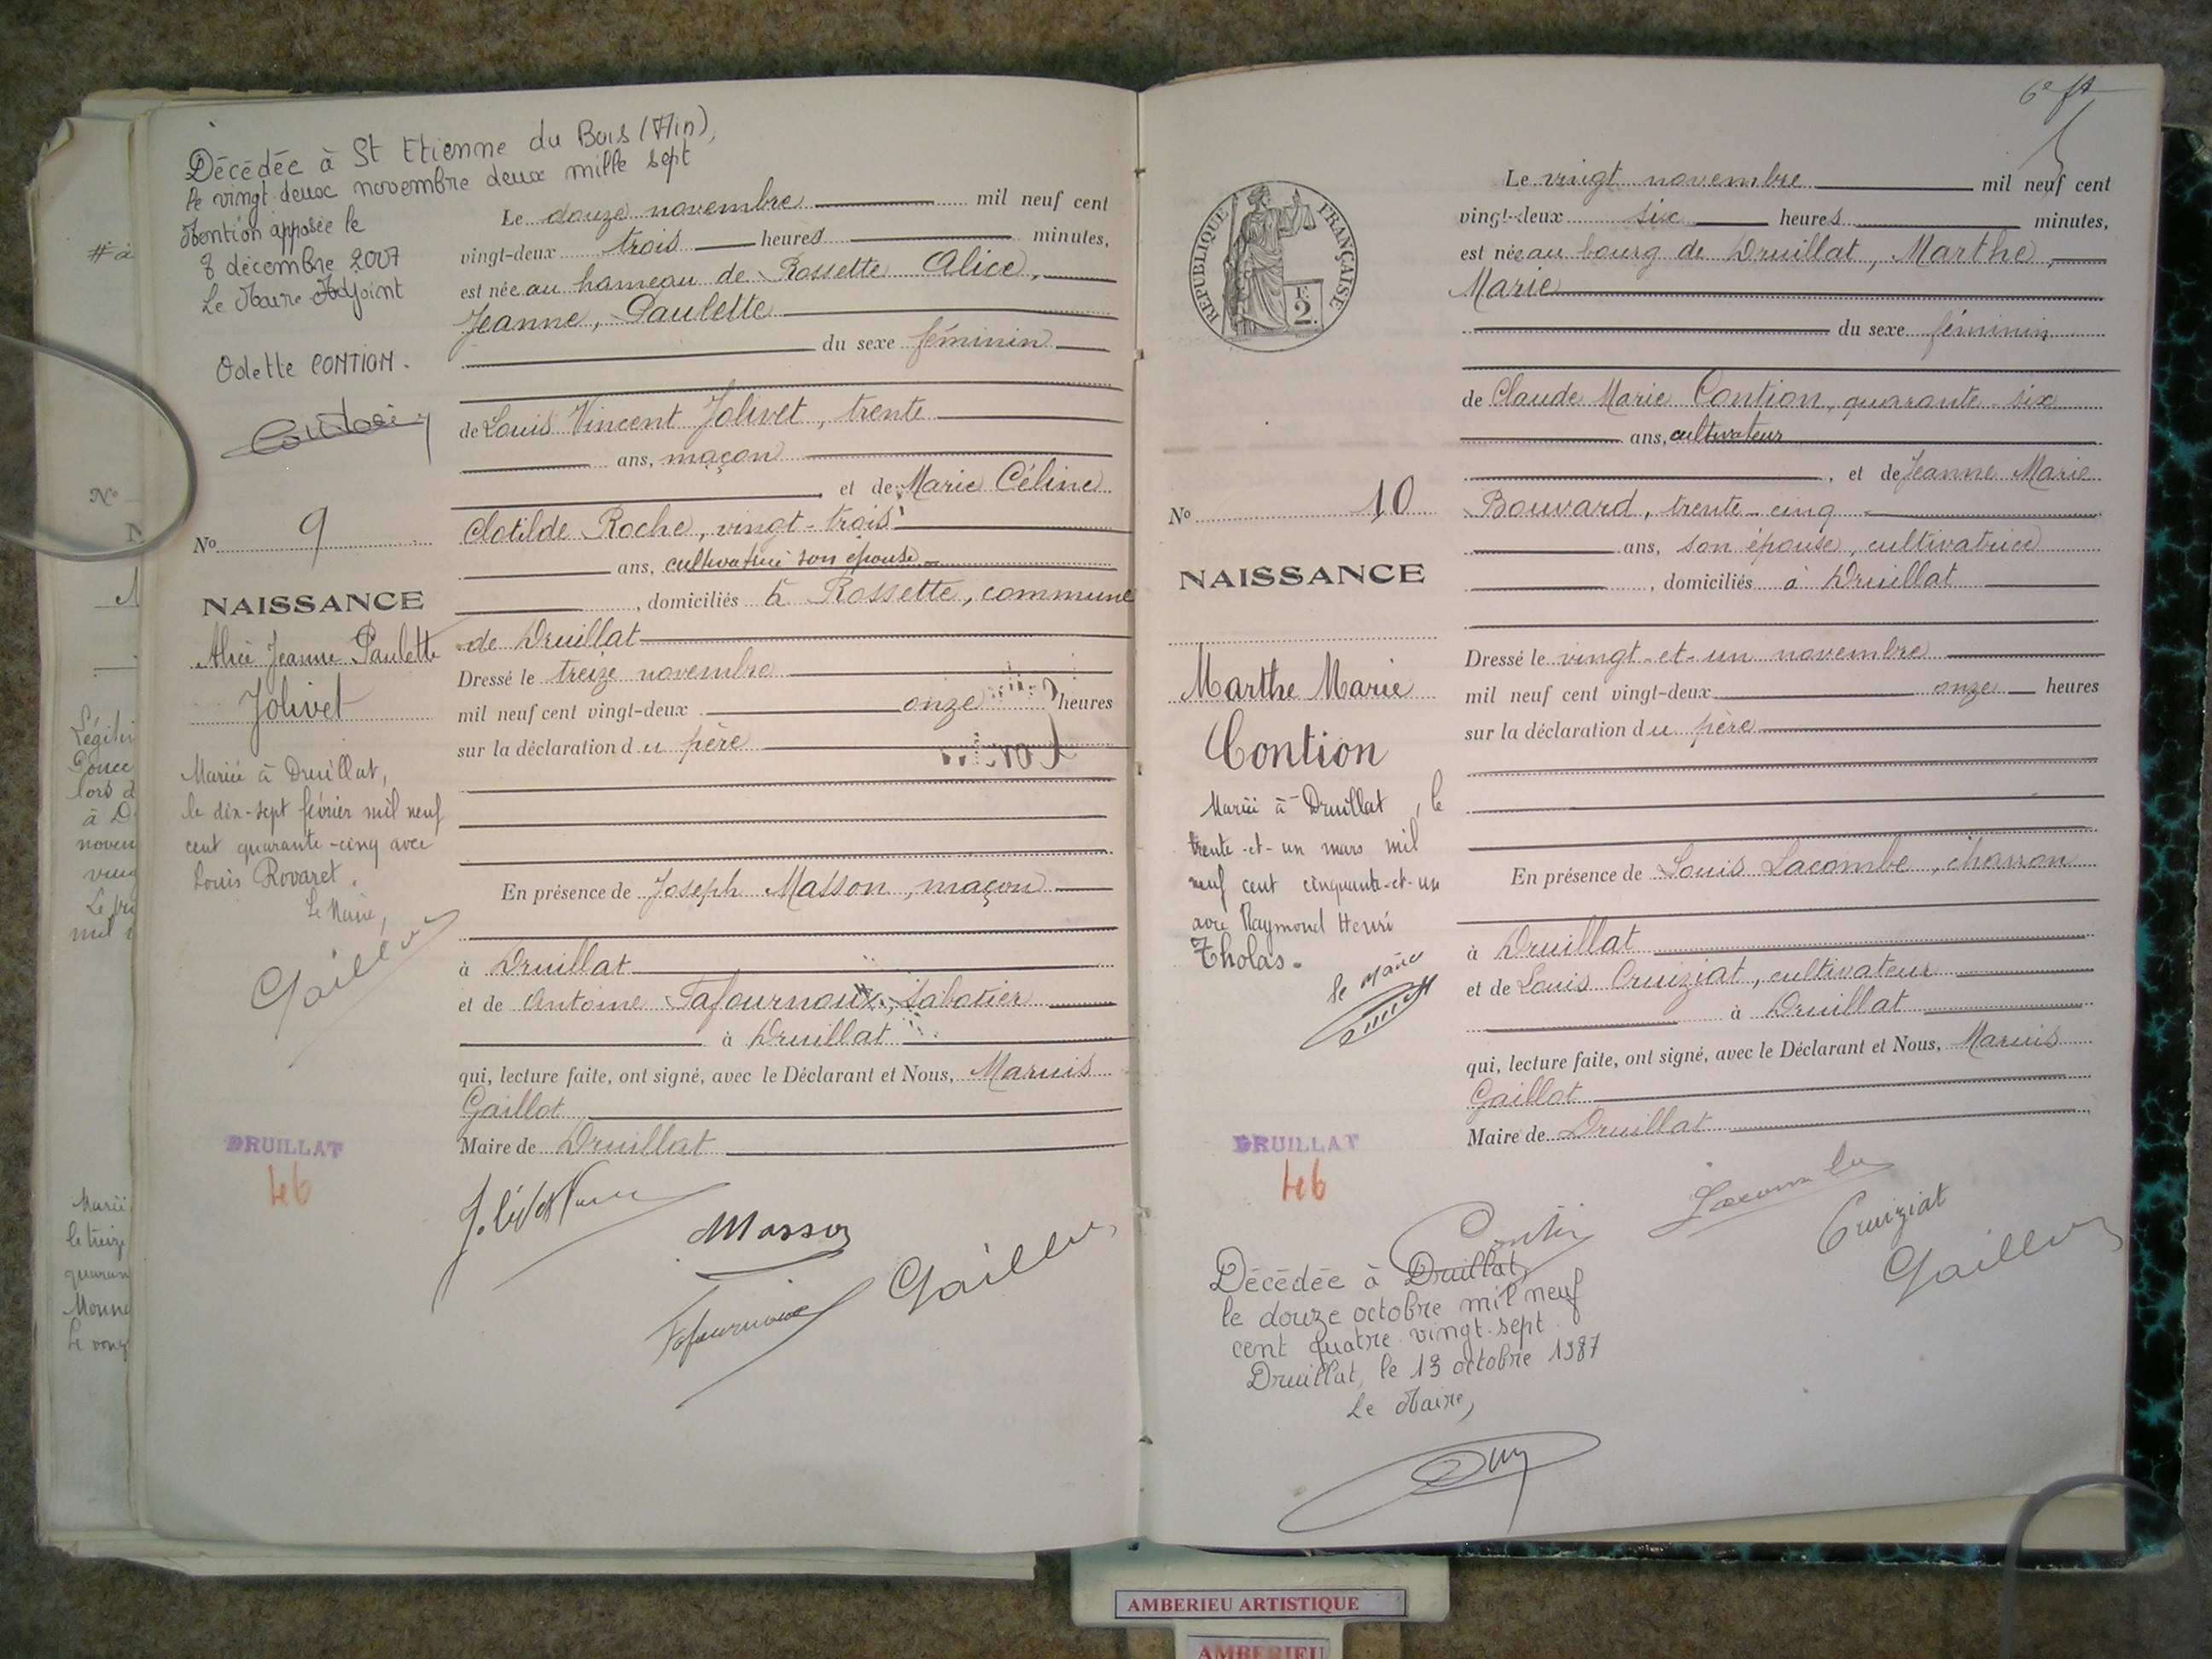 Décédée à St Etienne du Bois (Ain),
le vingt deux novembre deux mille sept
Mention apposée le
8 décembre 2007
Le Maire Adjoint
Odette CONTION.
Le douze novembre mil neuf cent
vingt-deux trois heures minutes,
est née au hameau de Rossette Alice,
Jeanne, Paulette
du sexe féminin
de Louis Vincent Jolivet, trente
ans, maçon
et de Marie Céline
Clotilde Roche, vingt-trois
ans, cultivatrice son épouse
, domiciliés à Rossette, commune
de Druillat
Dressé le treize novembre
mil neuf cent vingt-deux onze heures
sur la déclaration du père
En présence de Joseph Masson, maçon
à Druillat
et de Antoine Fafournoux, Sabotier
à Druillat
qui, lecture faite, ont signé, avec le Déclarant et Nous, Marius
Gaillot
Maire de Druillat
No 9
NAISSANCE
Alice Jeanne Paulette
Jolivet
Mariée à Druillat,
le dix-sept février mil neuf
cent quarante-cinq avec
Louis Rovaret.
Le Maire,
DRUILLAT
46
Masson
Fafournoux
6e ft
REPUBLIQUE FRANÇAISE
2
Le vingt novembre mil neuf cent
vingt-deux six heures minutes,
est née au bourg de Druillat, Marthe,
Marie
du sexe féminin
de Claude Marie Contion, quarante-six
ans, cultivateur
, et de Jeanne Marie
Bouvard, trente-cinq
ans, son épouse, cultivatrice
, domiciliés à Druillat
Dressé le vingt-et-un novembre
mil neuf cent vingt-deux onze heures
sur la déclaration du père
En présence de Louis Lacombe, charron
à Druillat
et de Louis Cruiziat, cultivateur
à Druillat
qui, lecture faite, ont signé, avec le Déclarant et Nous, Marius
Gaillot
Maire de Druillat
No 10
NAISSANCE
Marthe Marie
Contion
Mariée à Druillat, le
trente-et-un mars mil
neuf cent cinquante-et-un
avec Raymond Henri
Tholas.
le Maire
DRUILLAT
46
Lacombe
Cruiziat
Décédée à Druillat,
le douze octobre mil neuf
cent quatre vingt-sept
Druillat, le 13 octobre 1987
Le Maire,
AMBERIEU ARTISTIQUE
AMBERIEU